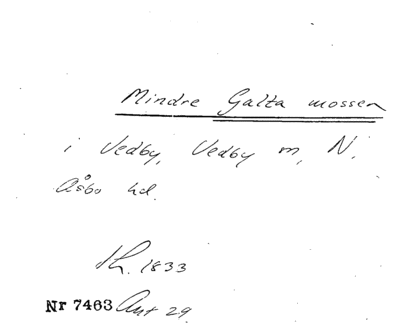 Mindre Galta mossen
i Vedby, Vedby m, N.
Åsbo hd.
Sk. 1833
Nr 7463 Ant 29